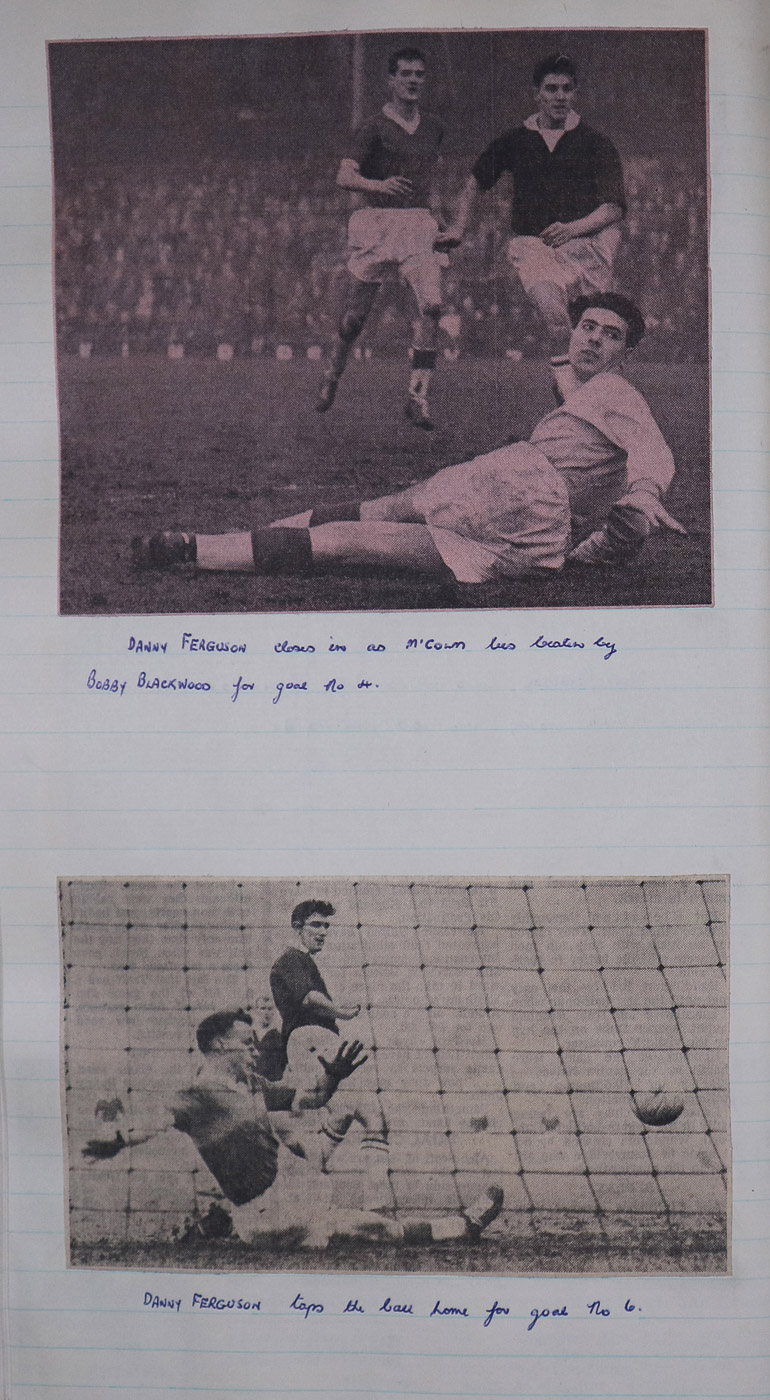 DANNY FERGUSON closes in as M'COWN lies beaten by
BOBBY BLACKWOOD for goal No 4.
DANNY FERGUSON taps the ball home for goal No 6.